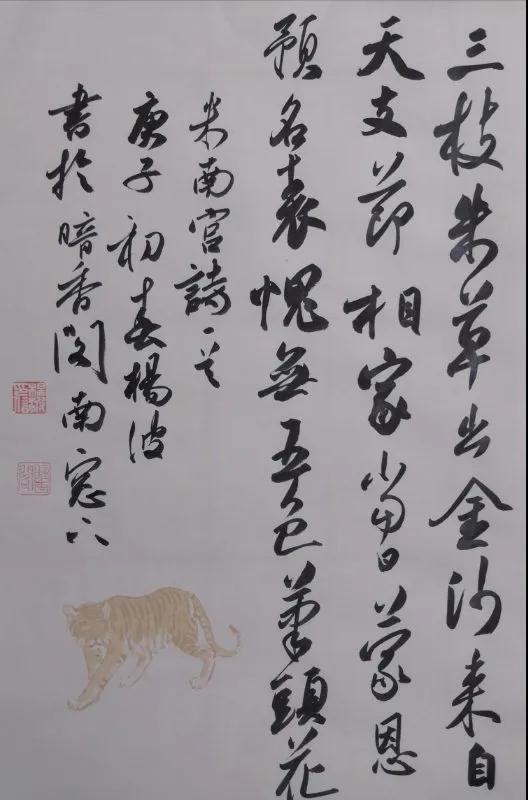 三枝朱草出金沙来自
天支節相家當日蒙恩
預名表愧無五色筆頭花
米南宫詩一首
庚子初春楊波
書於暗香閣南窓下